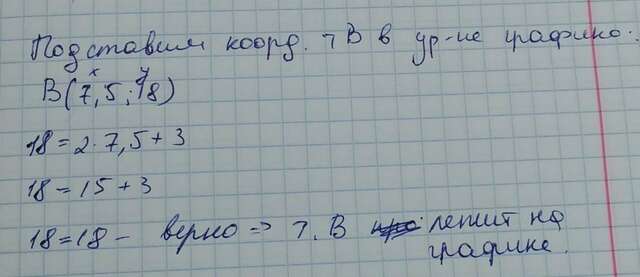 Подставим коорд. т В в ур-ие графика.
x y
В(7,5; 18)
18 = 2 · 7,5 + 3
18 = 15 + 3
18 = 18 – верно => т. В лежит на
графике.